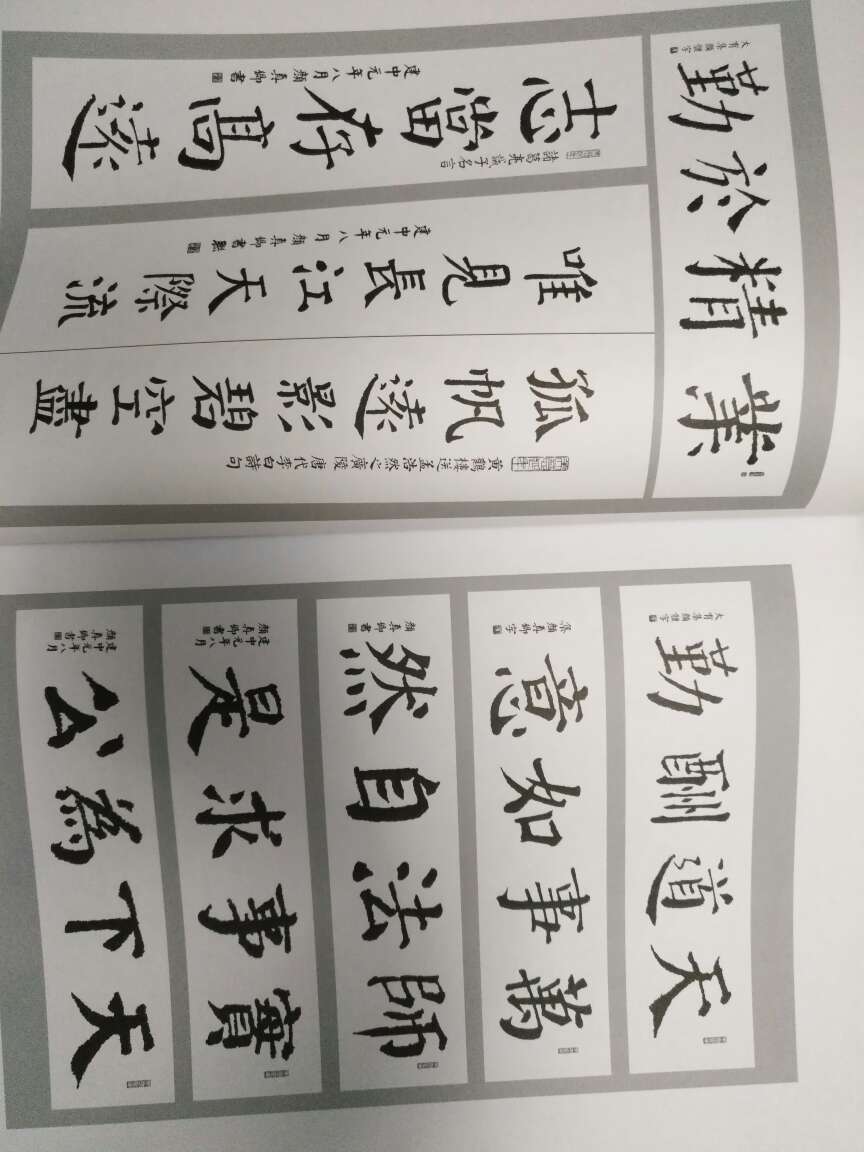 業精於勤
大有集顏體字
諸葛亮誡子名言
志當存高遠
建中元年八月顏真卿書
黃鶴樓送孟浩然之廣陵唐代李白詩句
孤帆遠影碧空盡
唯見長江天際流
建中元年八月顏真卿書
天道酬勤
大有集顏體字
萬事如意
集顏真卿字
師法自然
顏真卿書
實事求是
建中元年八月
顏真卿書
天下為公
建中元年八月
顏真卿書